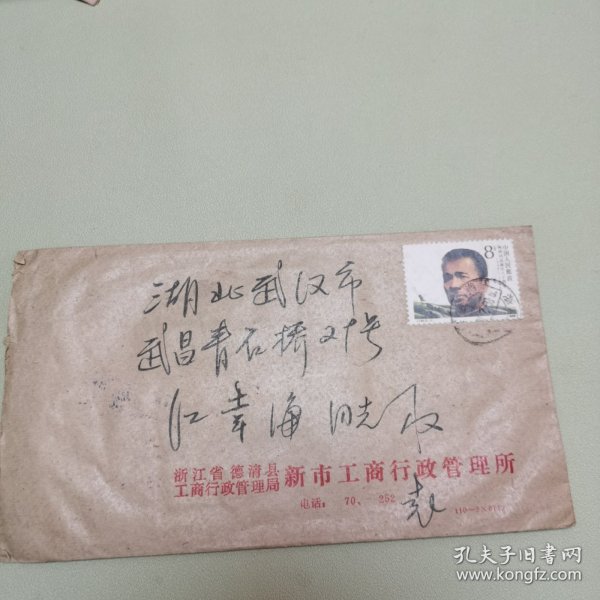 8分
中国人民邮政
湖北武汉市
武昌青石桥21号
江幸海 同志收
浙江省德清县
工商行政管理局
新市工商行政管理所
电话: 70、 252
袁
孔夫子旧书网
www.kongfz.com